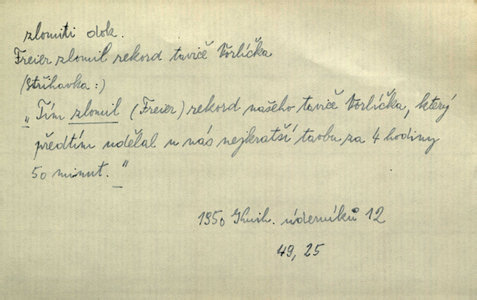 zlomiti dok.
Freier zlomil rekord taviče Vorlíčka
(Střihavka:)
„Tím zlomil (Freier) rekord našeho taviče Vorlíčka, který
předtím udělal u nás nejkratší tavbu za 4 hodiny
50 minut."
1950 Knih. úderníků 12
49, 25